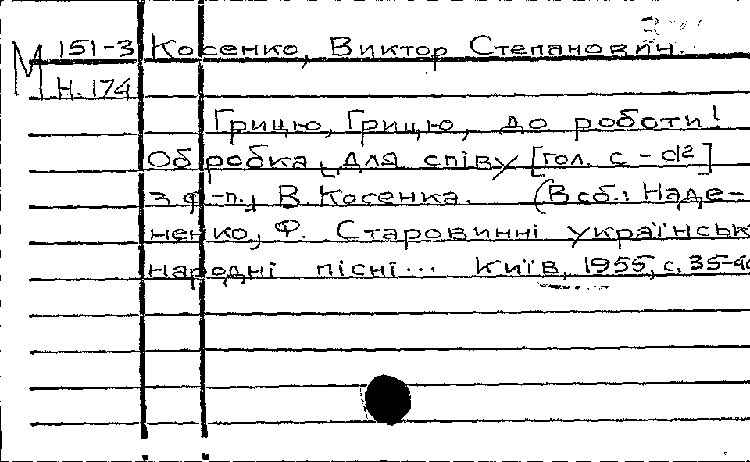 М 151-3 Косенко, Виктор Степанович.
Н. 174
Грицю, Грицю, до роботи!
Обробка для співу [гол. c – d²]
з ф-п., В. Косенка. (В сб.: Наде-
ненко, Ф. Старовинні українськ
народні пісні... Київ, 1955, с. 35-40